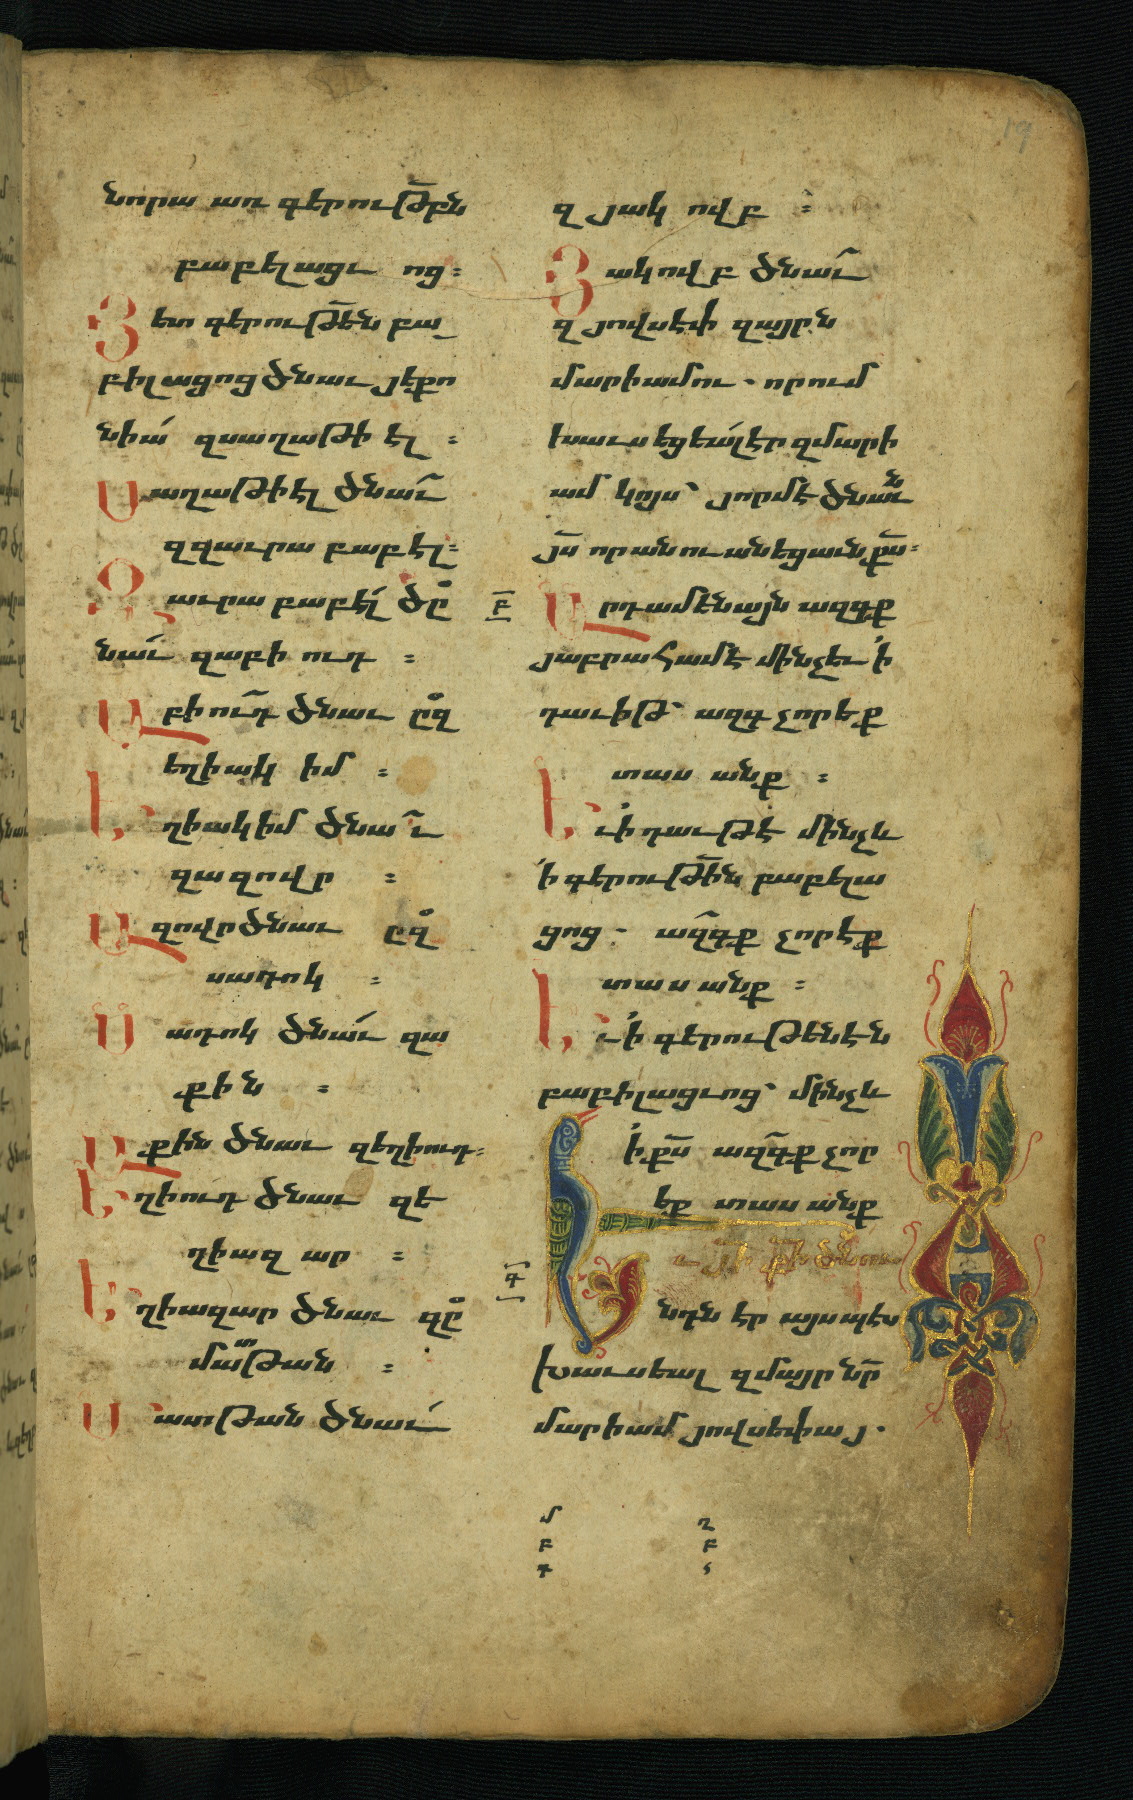 նորա առ գերութբն
բաբելացւ ոց։
Յետ գերութեն բա
բիլացոց ծնաւ յեքո
նիա զսաղաթիէլ ։
Սաղաթիէլ ծնաւ
զզաւրաբաբէլ։
Զաւրաբաբէլ ծը
նաւ զաբիուդ ։
Աբիուդ ծնաւ ըզ
եղիակիմ ։
Եղիակիմ ծնաւ
զազովր ։
Ազովր ծնաւ ըզ
սադոկ ։
Սադոկ ծնաւ զա
քին ։
Աքին ծնաւ զեղիուդ։
Եղիուդ ծնաւ զե
ղիազար ։
Եղիազար ծնաւ զը
մատթան ։
Մատթան ծնաւ
զյակովբ ։
Յակովբ ծնաւ
զյովսեփ զայրն
մարիամու. որում
խաւսեցեալ էր զմարի
ամ կոյս՝ յորմէ ծնաւն
յս որ անուանեցաւն քս։
բ
Արդ ամենայն ազգք
յաբրահամէ մինչեւ ՛ի
դաւիթ՝ ազգ չորեք
տասանք ։
Եւ ՛ի դաւթէ մինչև
՛ի գերութին բաբելա
ցոց. ազգք չորեք
տասանք ։
Եւ ՛ի գերութենէն
բաբիլացւոց՝ մինչև
՛ի քս ազգք չոր
եք տասանք
գ
Եւ յի քի ծնու
նդն էր այսպես
խաւսեալ զմայր նր
մարիամ յովսեփայ.
մ ղ
բ բ
գ